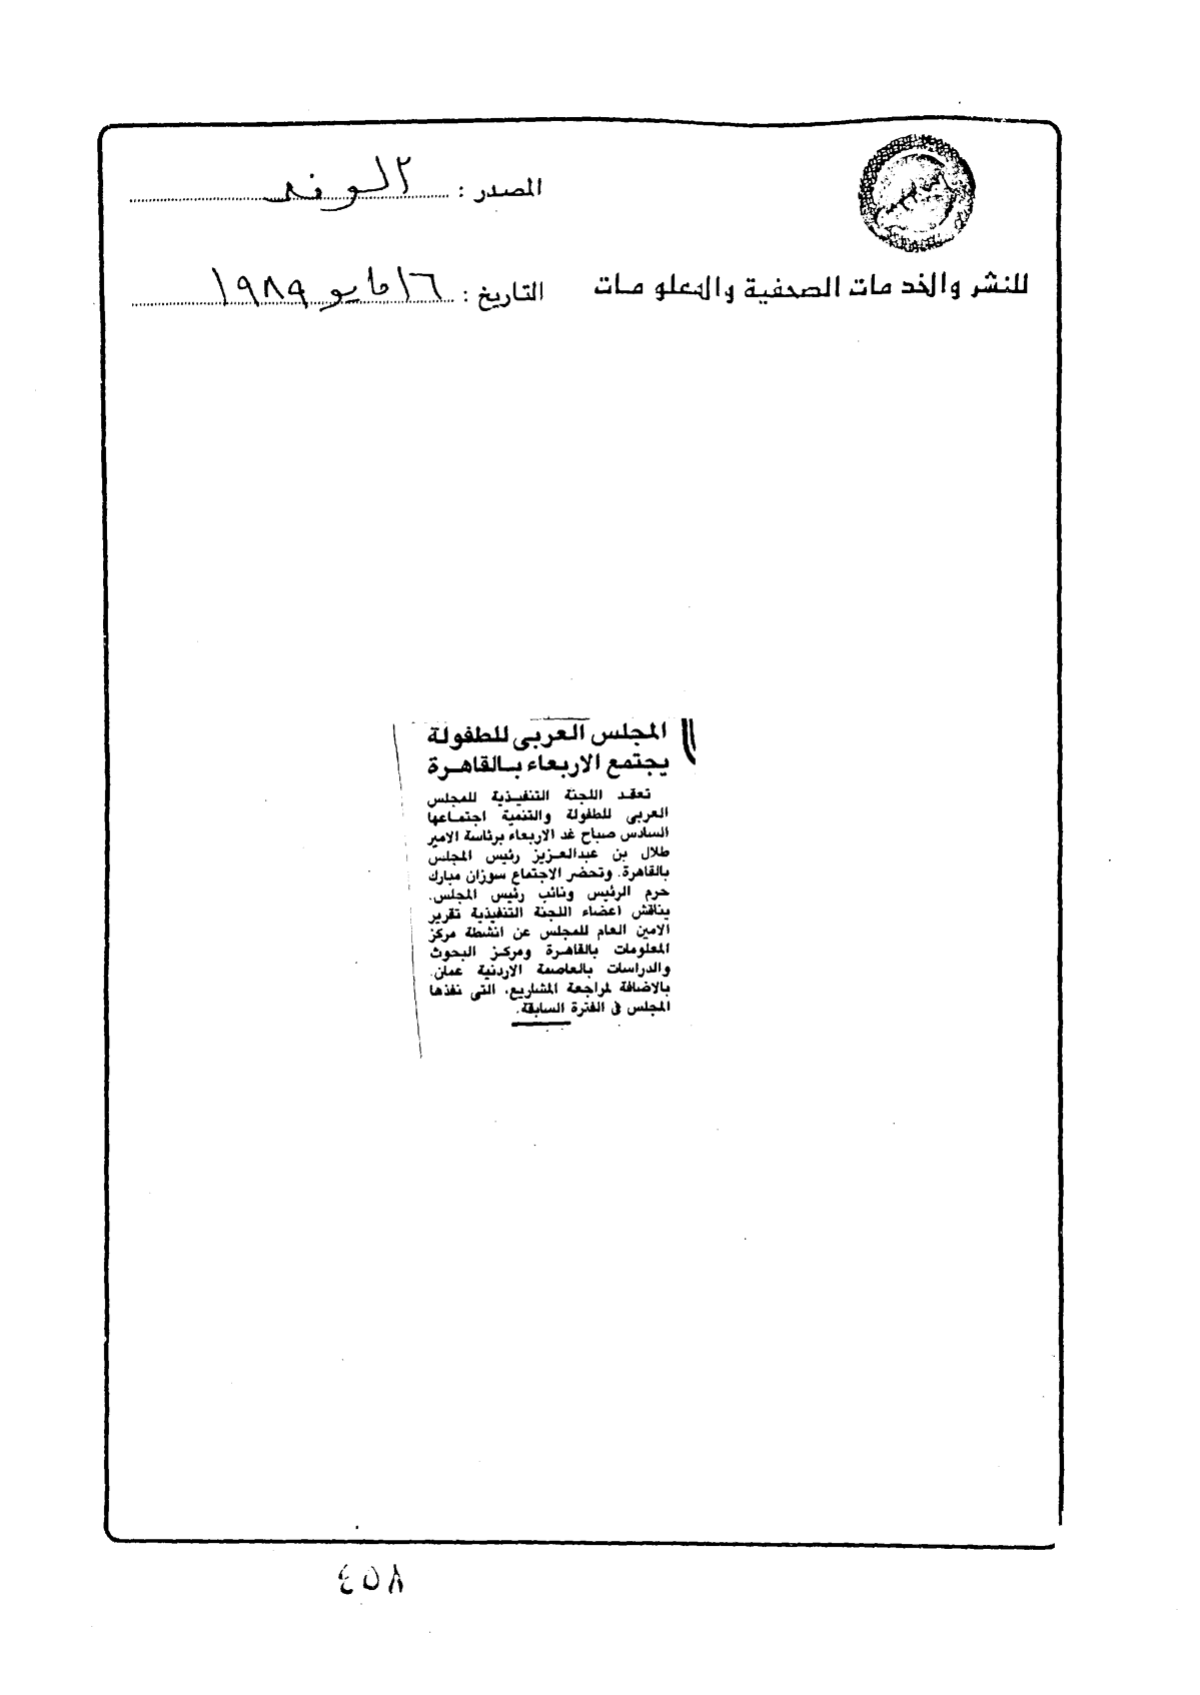 المصدر : الوفد
للنشر والخدمات الصحفية والمعلومات
التاريخ : ١٦ مايو ١٩٨٩
المجلس العربى للطفولة
يجتمع الاربعاء بالقاهرة
تعقد اللجنة التنفيذية للمجلس
العربى للطفولة والتنمية اجتماعها
السادس صباح غد الاربعاء برئاسة الامير
طلال بن عبدالعزيز رئيس المجلس
بالقاهرة. وتحضر الاجتماع سوزان مبارك
حرم الرئيس ونائب رئيس المجلس.
يناقش اعضاء اللجنة التنفيذية تقرير
الامين العام للمجلس عن انشطة مركز
المعلومات بالقاهرة ومركز البحوث
والدراسات بالعاصمة الاردنية عمان.
بالاضافة لمراجعة المشاريع، التى نفذها
المجلس فى الفترة السابقة.
٤٥٨